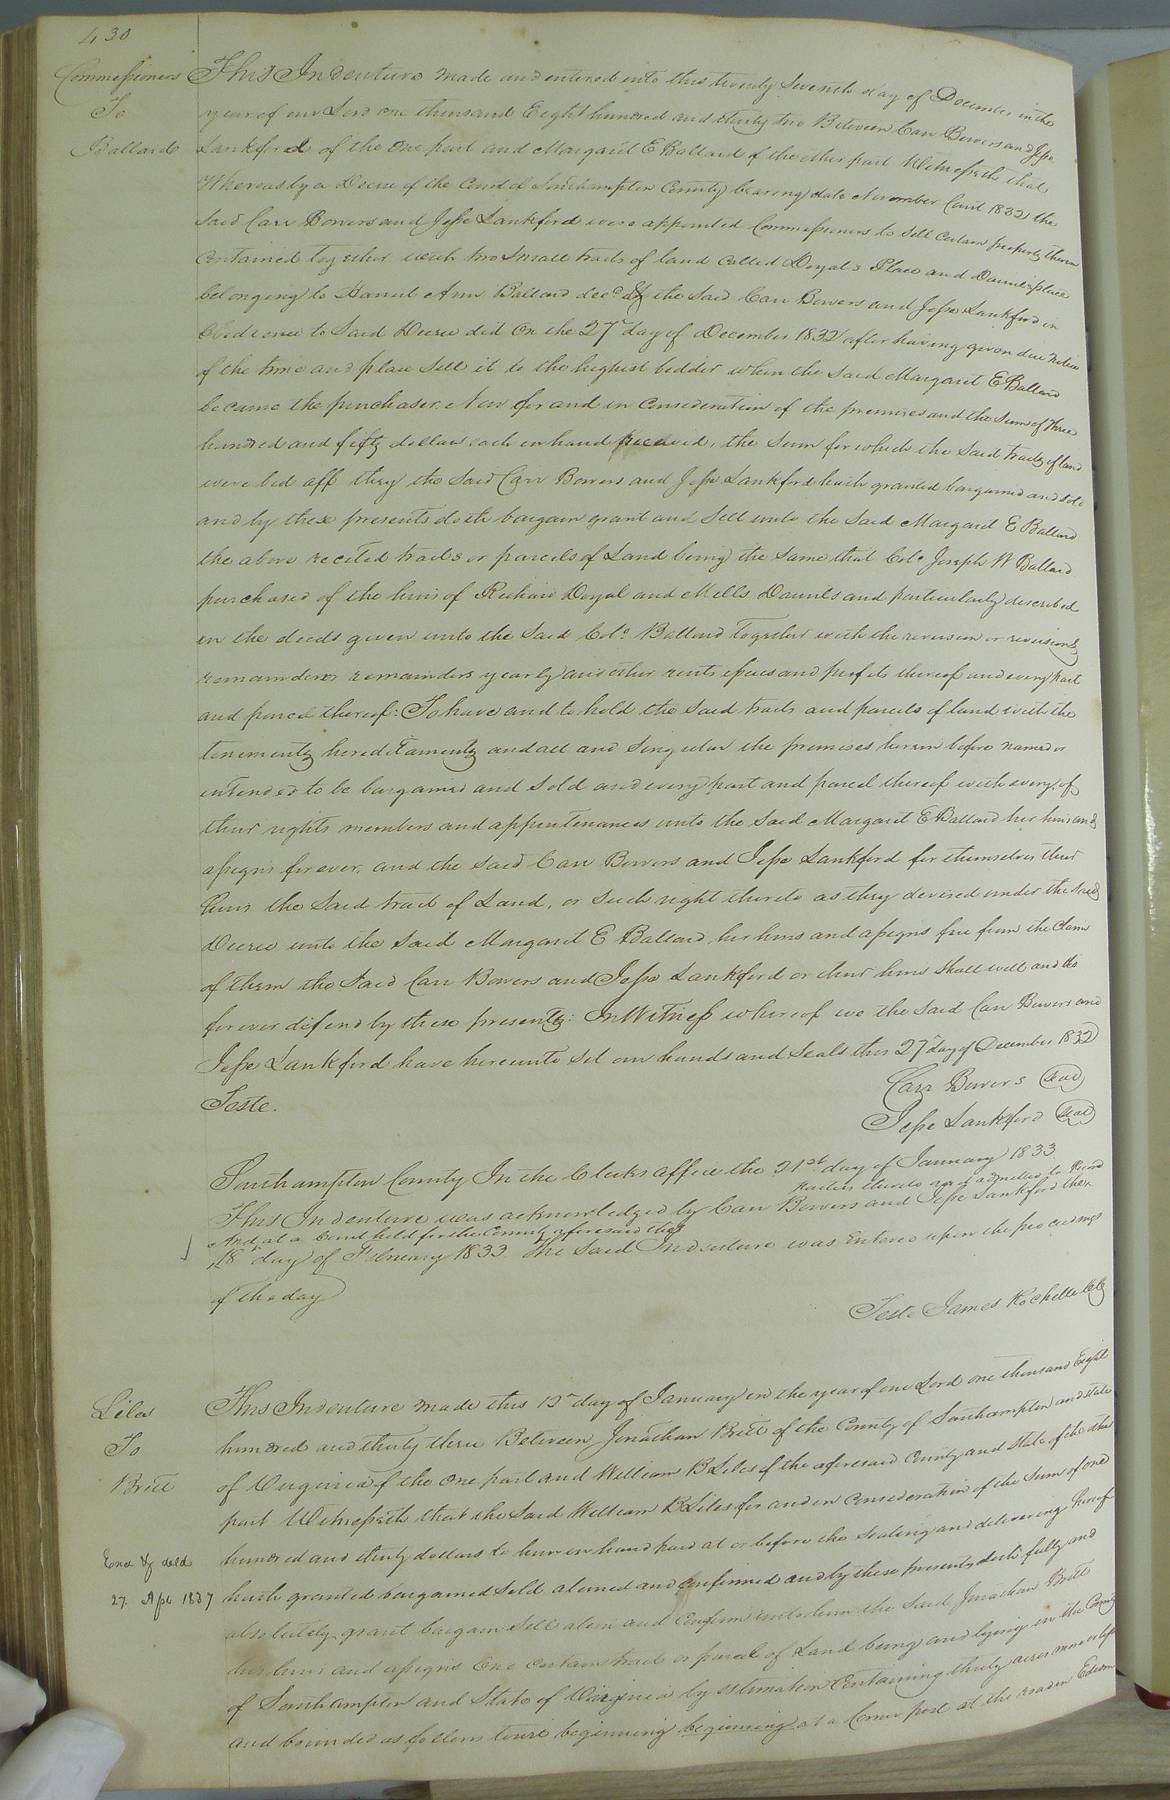 430
Commissioners
To
Ballard
This Indenture made and entered into this twenty seventh day of December in the
year of our Lord one thousand Eight hundred and thirty two Between Carr Bowers and Jesse
Lankford of the one part and Margaret E Ballard of the other part Witnesseth that
Whereas by a Decree of the Court of Southampton County bearing date November Court 1832 the
said Carr Bowers and Jesse Lankford were appointed Commissioners to sell certain property therein
contained together with two small tracts of land called Doyals Place and Daniels place
belonging to Ann Ballard decd & the said Carr Bowers and Jesse Lankford in
Obedience to said Decree did on the 27th day of December 1832 after having given due notice
of the time and place sell it to the highest bidder when the said Margaret E Ballard
became the purchaser. Now for and in consideration of the premises and the sum of three
hundred and fifty dollars each in hand received, the sum for which the said tracts of land
were bid off they the said Carr Bowers and Jesse Lankford hath granted bargained and sold
and by these presents doth bargain grant and sell unto the said Margaret E Ballard
the above recited tracts or parcels of Land being the same that Colo Joseph W Ballard
purchased of the heirs of Richard Doyal and Mills Daniels and particularly described
in the deeds given unto the said Colo Ballard together with the reversion or reversions
remainder or remainders yearly and other rents issues and profits thereof and every part
and parcel thereof: To have and to hold the said tracts and parcels of land with the
tenements hereditaments and all and singular the premises herein before named or
intended to be bargained and sold and every part and parcel thereof with every of
their rights members and appurtenances unto the said Margaret E Ballard her heirs and
assigns forever, and the said Carr Bowers and Jesse Lankford for themselves their
heirs the said tract of Land, or such right thereto as they derived under the said
Decree unto the said Margaret E Ballard, her heirs and assigns free from the claim
of them the said Carr Bowers and Jesse Lankford or their heirs shall will and do
forever defend by these presents: In Witness whereof we the said Carr Bowers and
Jesse Lankford have hereunto set our hands and seals this 27th day of December 1832
Teste.
Carr Bowers Seal
Jesse Lankford Seal
Southampton County In the Clerks office the 21st day of January 1833
This Indenture was acknowledged by Carr Bowers and Jesse Lankford the
parties thereto and admitted to Record
And at a Court held for the County aforesaid the
18th day of February 1833 The said Indenture was Entered upon the proceedings
of the day
Teste James Rochelle Clk
Liles
To
Britt
This Indenture made this 12th day of January in the year of our Lord one thousand Eight
hundred and thirty three Between Jonathan Britt of the County of Southampton and state
of Virginia of the one part and William B Liles of the aforesaid County and State of the other
part Witnesseth that the said William B Liles for and in consideration of the sum of one
hundred and thirty dollars to him in hand paid at or before the sealing and delivering hereof
hath granted bargained sold aliened and confirmed and by these presents doth fully and
absolutely grant bargain sell alien and confirm unto him the said Jonathan Britt
his heirs and assigns One certain tract or parcel of Land being and lying in the County
of Southampton and State of Virginia by estimation containing thirty acres more or less
and bounded as follows towit beginning beginning at a Corner post at the road in Edwin
Exd & deld
27. Apl 1837